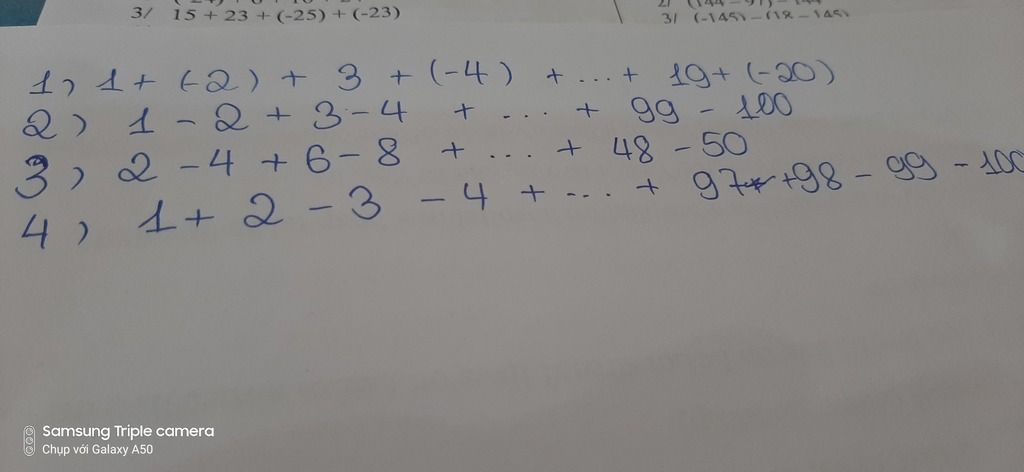 3/ 15 + 23 + (-25) + (-23)
3/ (-145) – (18 – 145)
1) 1 + (-2) + 3 + (-4) + ... + 19 + (-20)
2) 1 - 2 + 3 - 4 + ... + 99 - 100
3) 2 - 4 + 6 - 8 + ... + 48 - 50
4) 1 + 2 - 3 - 4 + ... + 97 + 98 - 99 - 100
Samsung Triple camera
Chụp với Galaxy A50